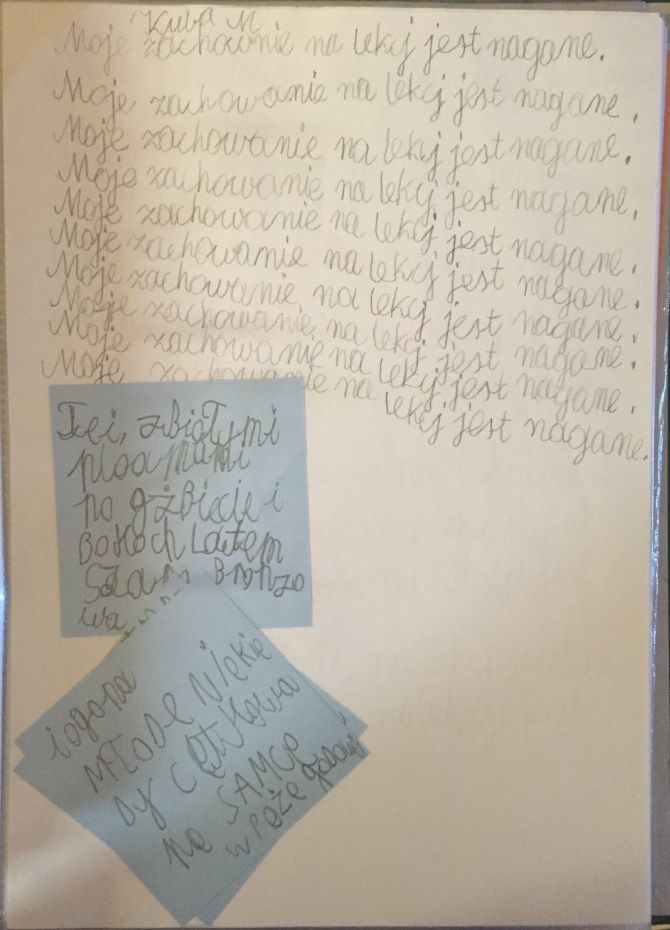 Kuba M
Moje zachownie na lekcj jest nagane.
Moje zachowanie na lekcj jest nagane.
Moje zachowanie na lekcj jest nagane.
Moje zachowanie na lekcj jest nagane.
Moje zachowanie na lekcj jest nagane.
Moje zachowanie na lekcj jest nagane.
Moje zachowanie na lekcj jest nagane.
Moje zachowanie na lekcj jest nagane.
Moje zachowanie na lekcj jest nagane.
Moje zachowanie na lekcj jest nagane.
z białymi
plaamami
po gżbiecie i
Bokoch Latem
Bronzo
wa
iogona
MŁODE Niekie
Dy CĘtkowa
ne SAMce
w Poże godowej